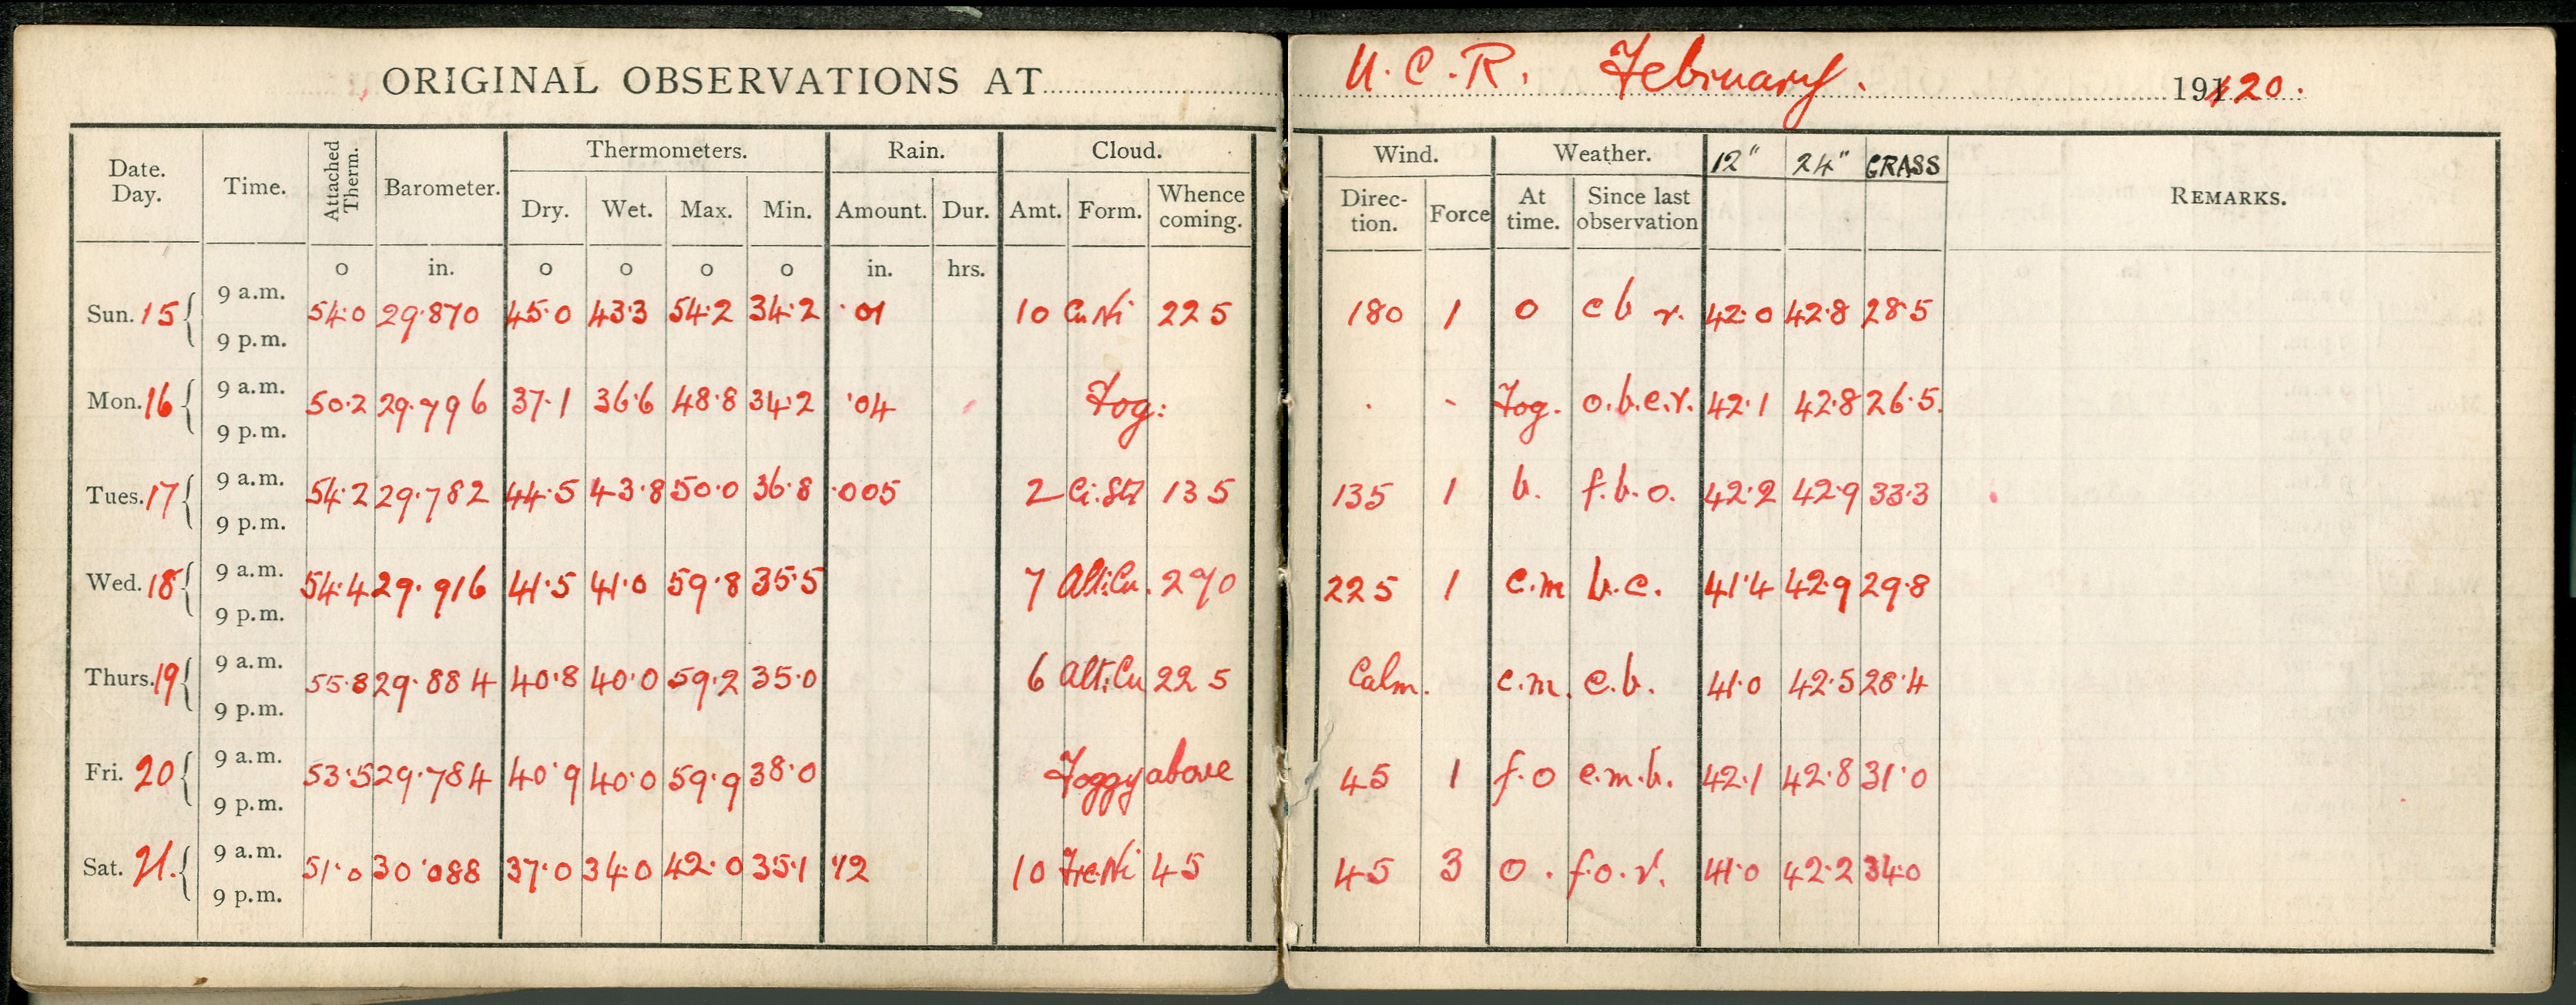 ORIGINAL OBSERVATIONS AT U.C.R. February. 1920.
Date. Day. Time. Attached Therm. Barometer. Thermometers. Rain. Cloud. Wind. Weather. 12" 24" GRASS REMARKS.
Dry. Wet. Max. Min. Amount. Dur. Amt. Form. Whence coming. Direc- tion. Force At time. Since last observation
o in. o o o o in. hrs.
Sun. 15 9 a.m. 54.0 29.870 45.0 43.3 54.2 34.2 .01 10 Cu Ni 225 180 1 o c b r. 42.0 42.8 28.5
9 p.m.
Mon. 16 9 a.m. 50.2 29.796 37.1 36.6 48.8 34.2 .04 Fog: . - Fog. o.b.c.r. 42.1 42.8 26.5.
9 p.m.
Tues. 17 9 a.m. 54.2 29.782 44.5 43.8 50.0 36.8 .005 2 Ci.St 135 135 1 b. f.b.o. 42.2 42.9 33.3
9 p.m.
Wed. 18 9 a.m. 54.4 29.916 41.5 41.0 59.8 35.5 7 Alt:Cu. 270 225 1 c.m b.c. 41.4 42.9 29.8
9 p.m.
Thurs. 19 9 a.m. 55.8 29.884 40.8 40.0 59.2 35.0 6 Alt:Cu 225 Calm. c.m. c.b. 41.0 42.5 28.4
9 p.m.
Fri. 20 9 a.m. 53.5 29.784 40.9 40.0 59.9 38.0 Foggy above 45 1 f.o c.m.b. 42.1 42.8 31.0
9 p.m.
Sat. 21. 9 a.m. 51.0 30.088 37.0 34.0 42.0 35.1 .12 10 Frc.Ni 45 45 3 o. f.o.r. 41.0 42.2 34.0
9 p.m.